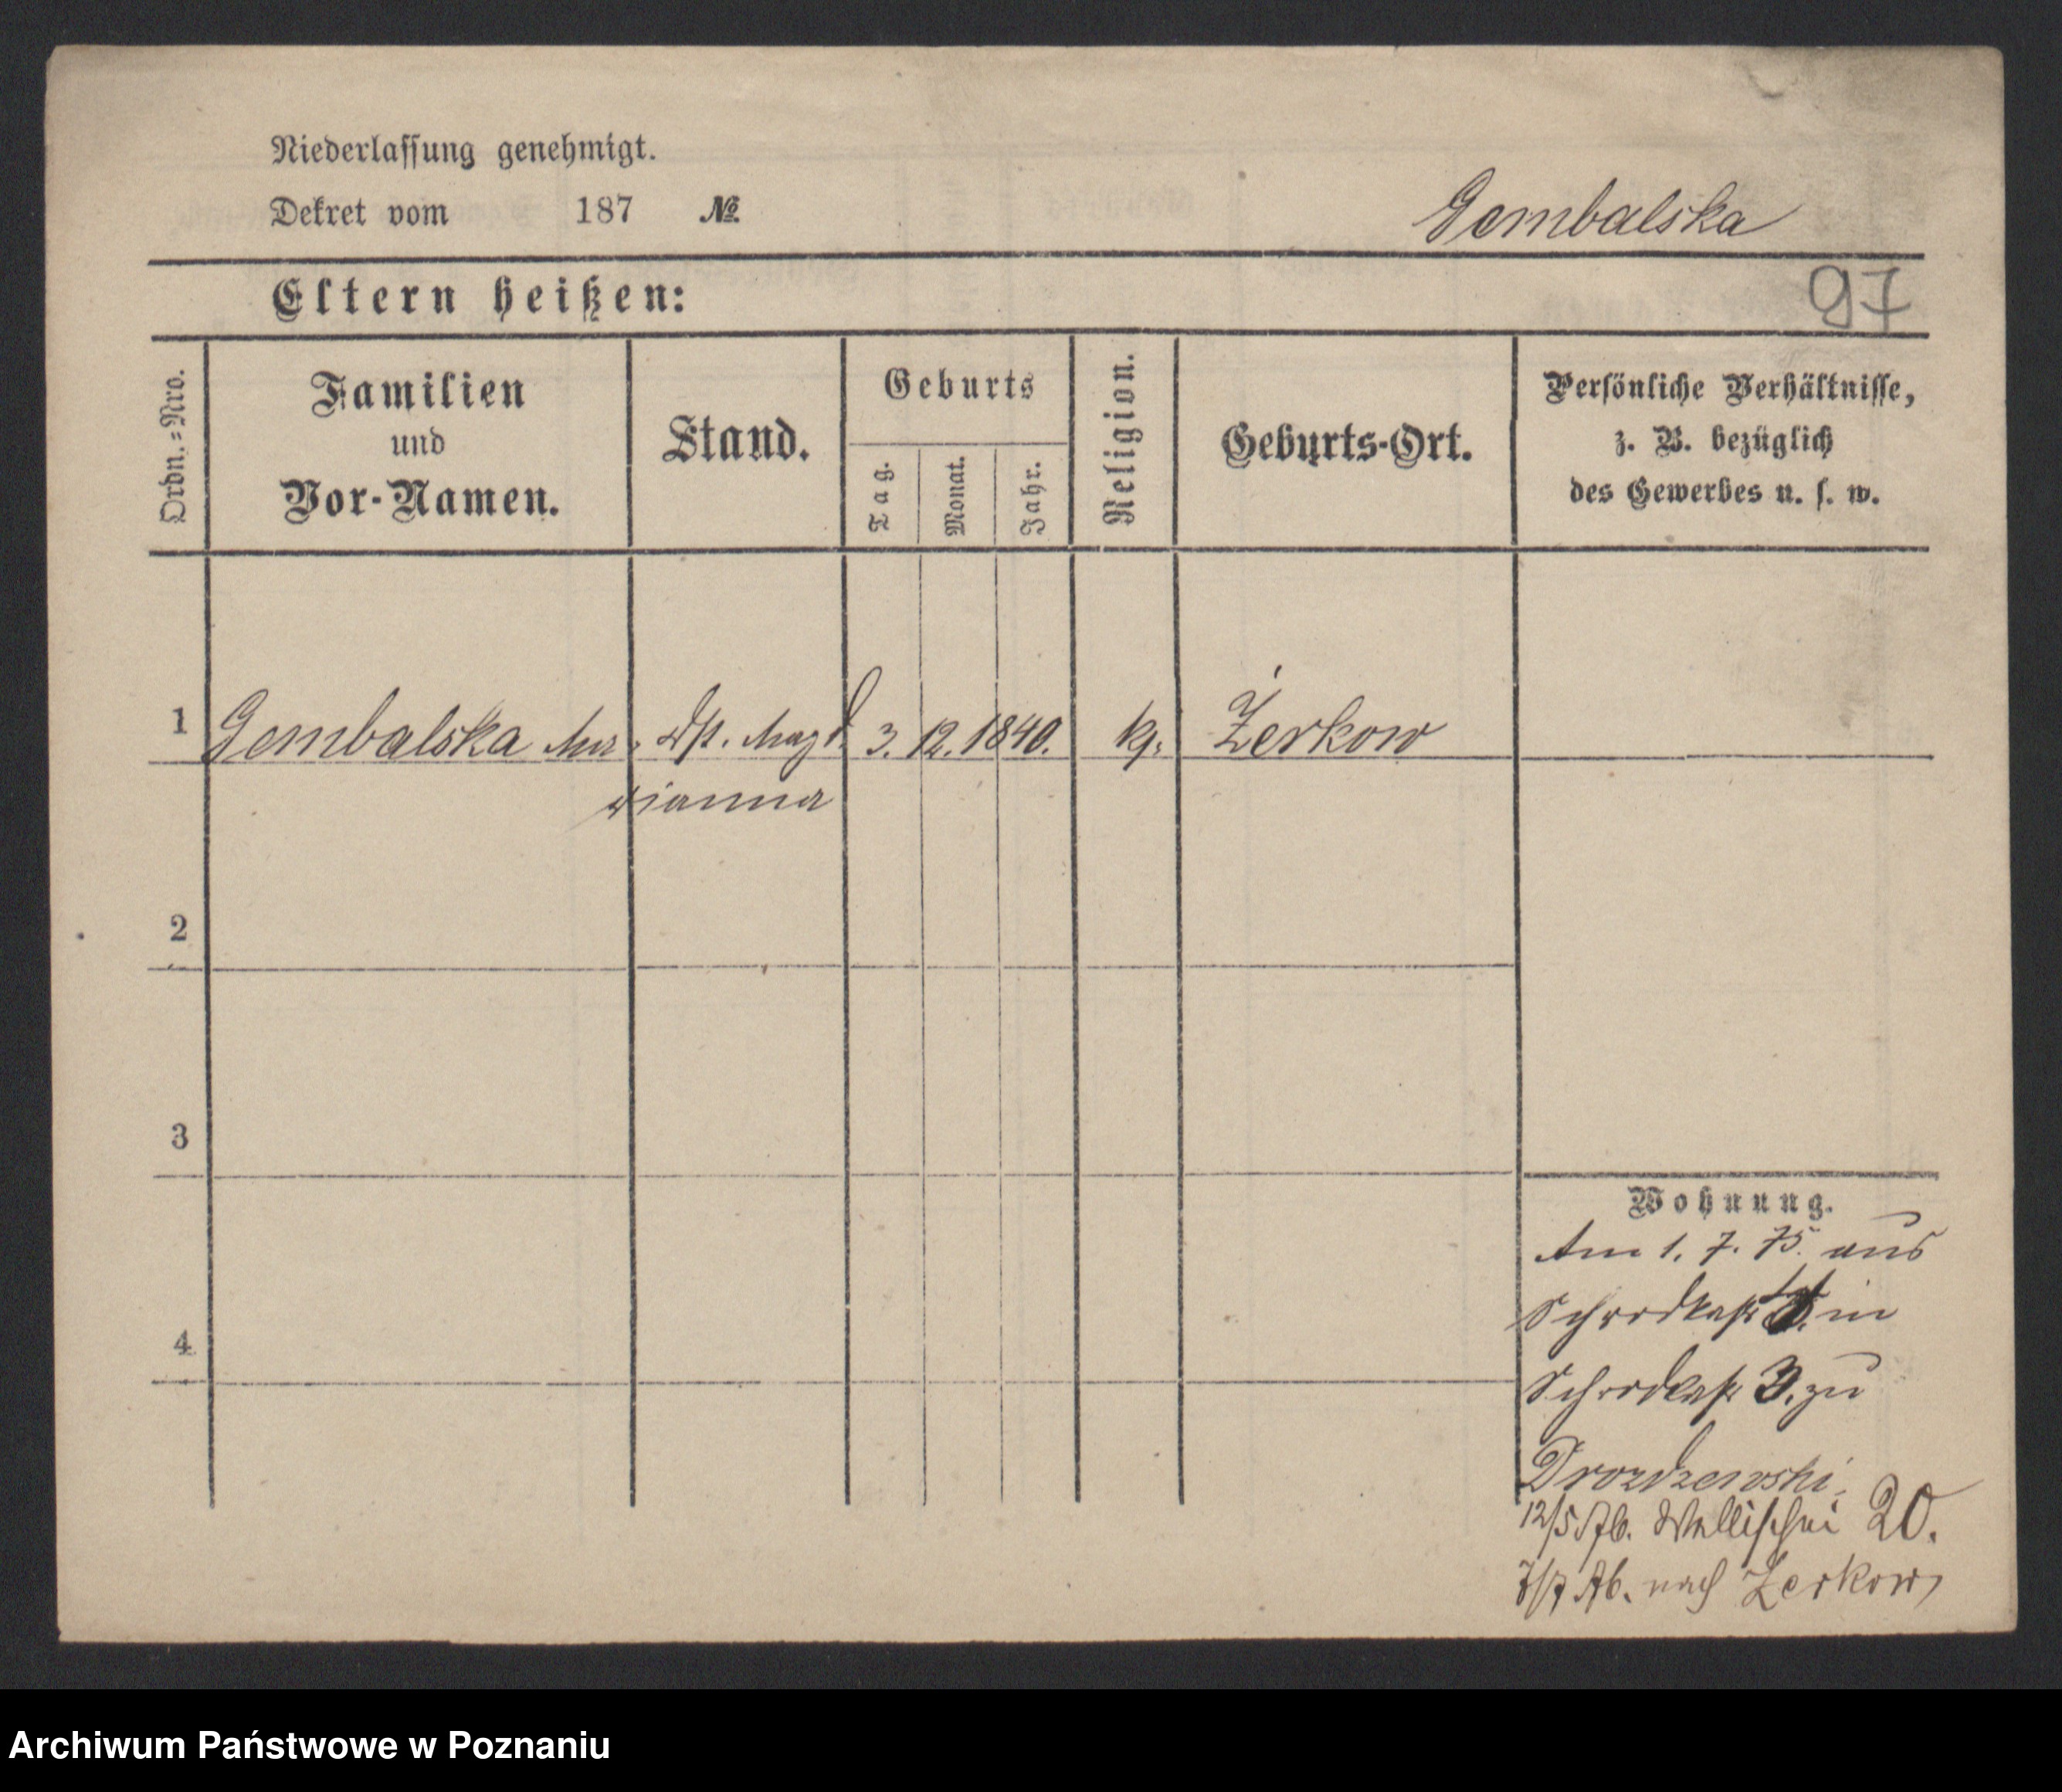 Niederlassung genehmigt.
Dekret vom 187 №
Gembalska
Eltern heißen:
97
Ordn.-Nro.
Familien
und
Vor-Namen.
Stand.
Geburts
Tag.
Monat.
Jahr.
Religion.
Geburts-Ort.
Persönliche Verhältnisse,
z. B. bezüglich
des Gewerbes u. s. w.
1 Gembalska Mar- Magd. 3. 12. 1840. Żerkow
rianna
2
3
4
Wohnung.
Am 1. 7. 75. aus
in
3. zu
Drozdzewski.
12/5 76. Wallischei 20.
7/7 Ab. nach Zerkow
Archiwum Państwowe w Poznaniu